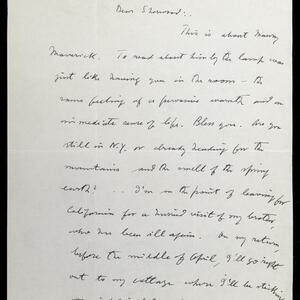 Dear Sherwood:..
This is about Maury
Maverick. To read about him by the lamp was
just like having you in the room — the
same feeling of a pervasive warmth and an
immediate sense of life. Bless you. Are you
still in N.Y. or already heading for the
mountains and the smell of the spring
earth? .. I'm on the point of leaving for
California for a hurried visit of my brother,
who has been ill again. On my return,
before the middle of April, I'll go right
out to my cottage where I'll be sticking